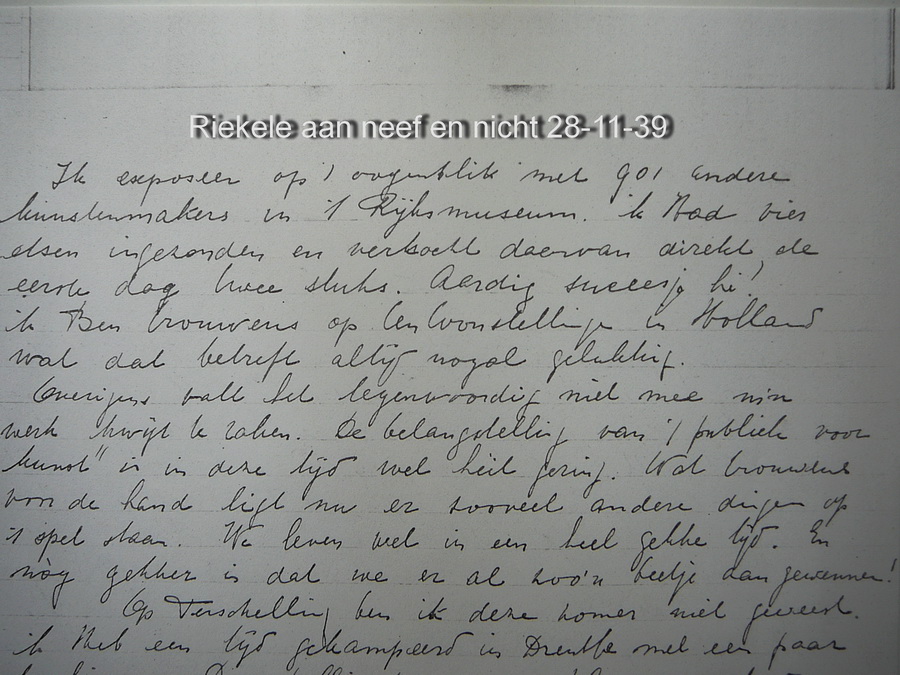 Riekele aan neef en nicht 28-11-39
Ik exposeer op 't oogenblik met 901 andere
kunstenmakers in 't Rijksmuseum. ik Had vier
etsen ingezonden en verkocht daarvan direkt de
eerste dag twee stuks. Aardig succesje hè!
ik Ben trouwens op tentoonstellingen in Holland
wat dat betreft altijd nogal gelukkig.
Overigens valt het tegenwoordig niet mee m'n
werk kwijt te raken. De belangstelling van 't publiek voor
"kunst" is in deze tijd wel héél gering. Wat trouwens
voor de hand ligt nu er zooveel andere dingen op
't spel staan. We leven wel in een heel gekke tijd. En
nòg gekker is dat we er al zoo'n beetje aan gewennen!
Op Terschelling ben ik deze zomer niet geweest.
ik Heb een tijd gekampeerd in Drenthe met een paar